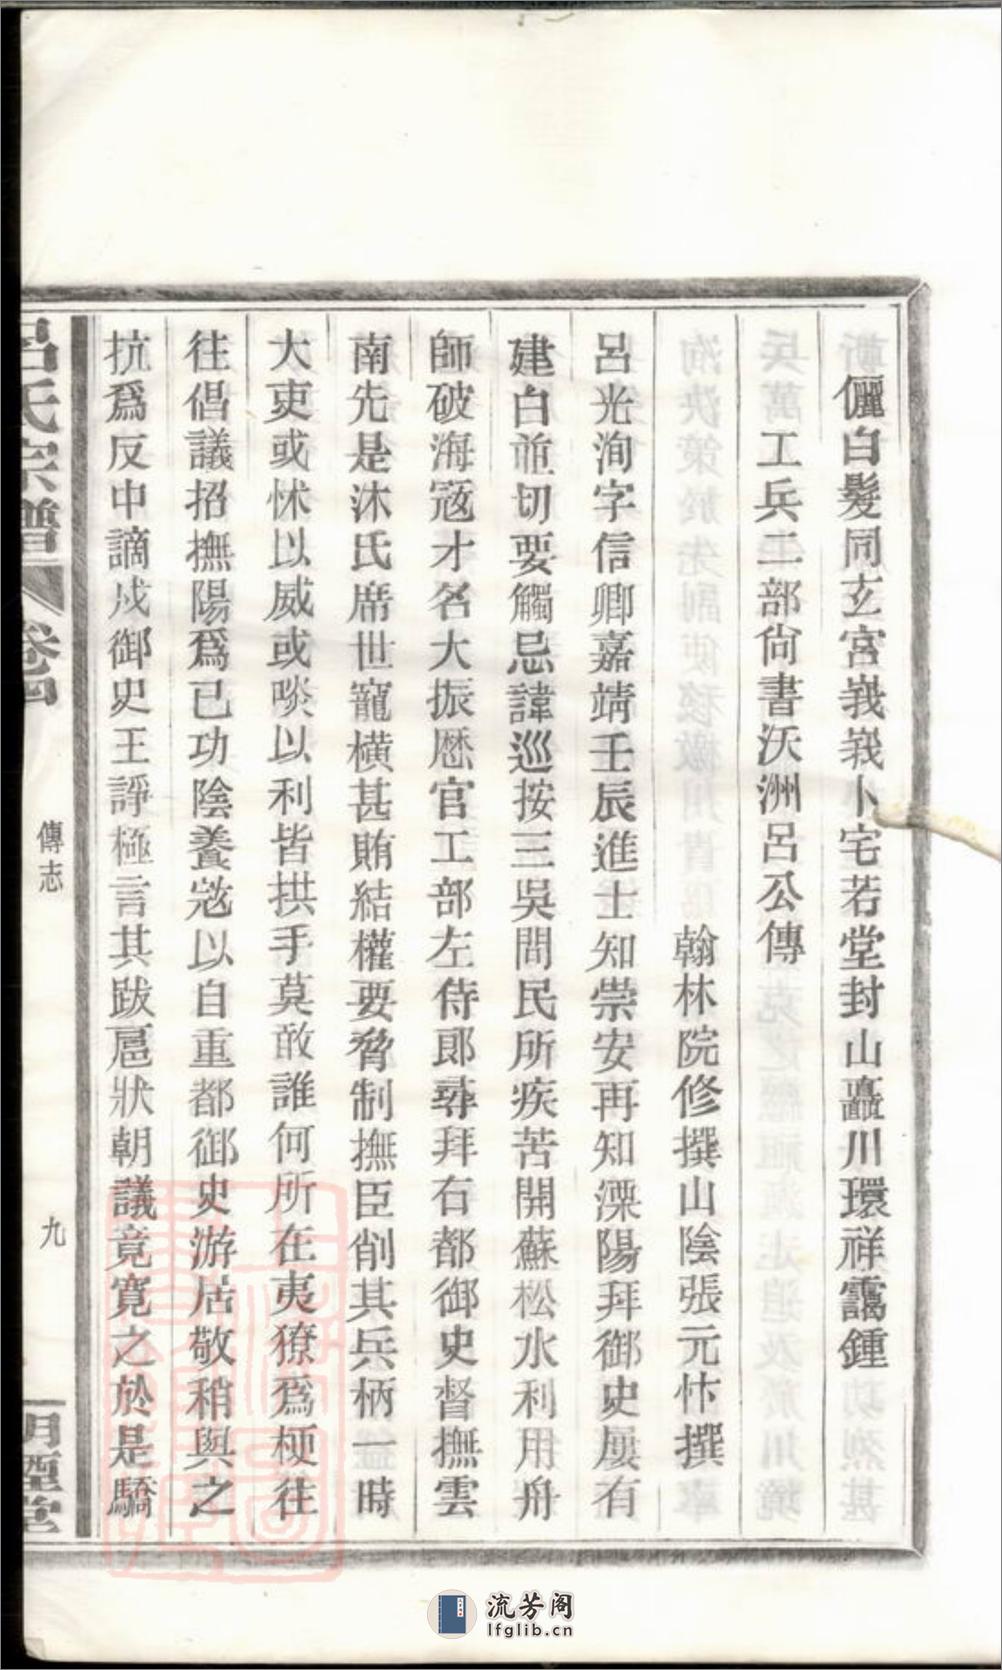 儷白髮同玄宮峩峩卜宅若堂封山矗川環祥靄鍾
工兵二部尙書沃洲呂公傳
翰林院修撰山陰張元忭撰
呂光洵字信卿嘉靖壬辰進士知崇安再知溧陽拜御史屢有
建白並切要觸忌諱巡按三吳問民所疾苦開蘇松水利用舟
師破海寇才名大振歷官工部左侍郎尋拜右都御史督撫雲
南先是沐氏席世寵橫甚賄結權要脅制撫臣削其兵柄一時
大吏或怵以威或啖以利皆拱手莫敢誰何所在夷獠爲梗往
往倡議招撫陽爲己功陰養寇以自重都御史游居敬稍與之
抗爲反中謫戍御史王諍極言其跋扈狀朝議竟寬之於是驕
呂氏宗譜 卷四 傳志 九 明煙堂
流芳阁
lfglib.cn